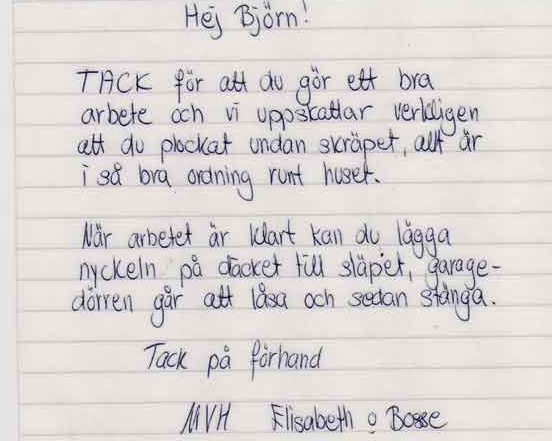 Hej Björn!
TACK för att du gör ett bra
arbete och vi uppskattar verkligen
att du plockat undan skräpet, allt är
i så bra ordning runt huset.
När arbetet är klart kan du lägga
nyckeln på däcket till släpet, garage-
dörren går att låsa och sedan stänga.
Tack på förhand
MVH Elisabeth o Bosse